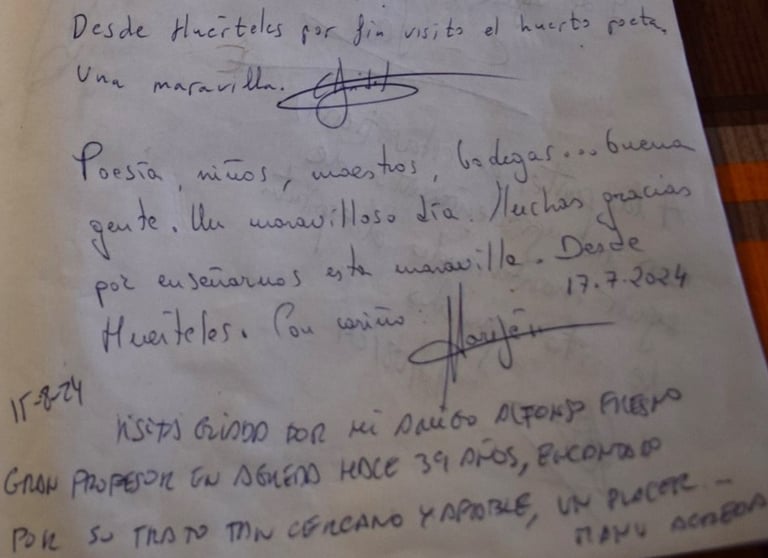 Desde Huérteles por fin visito el huerto poeta.
Una maravilla.
Poesía, niños, maestros, bodegas... buena
gente. Un maravilloso día. Muchas gracias
por enseñarnos esta maravilla. Desde
Huérteles. Con cariño: 17.7.2024
15-8-24
VISITA GUIADA POR MI AMIGO ALFONSO
GRAN PROFESOR EN AGREDA HACE 39 AÑOS, ENCANTADO
POR SU TRATO TAN CERCANO Y AFABLE, UN PLACER -
MANU AGREDA